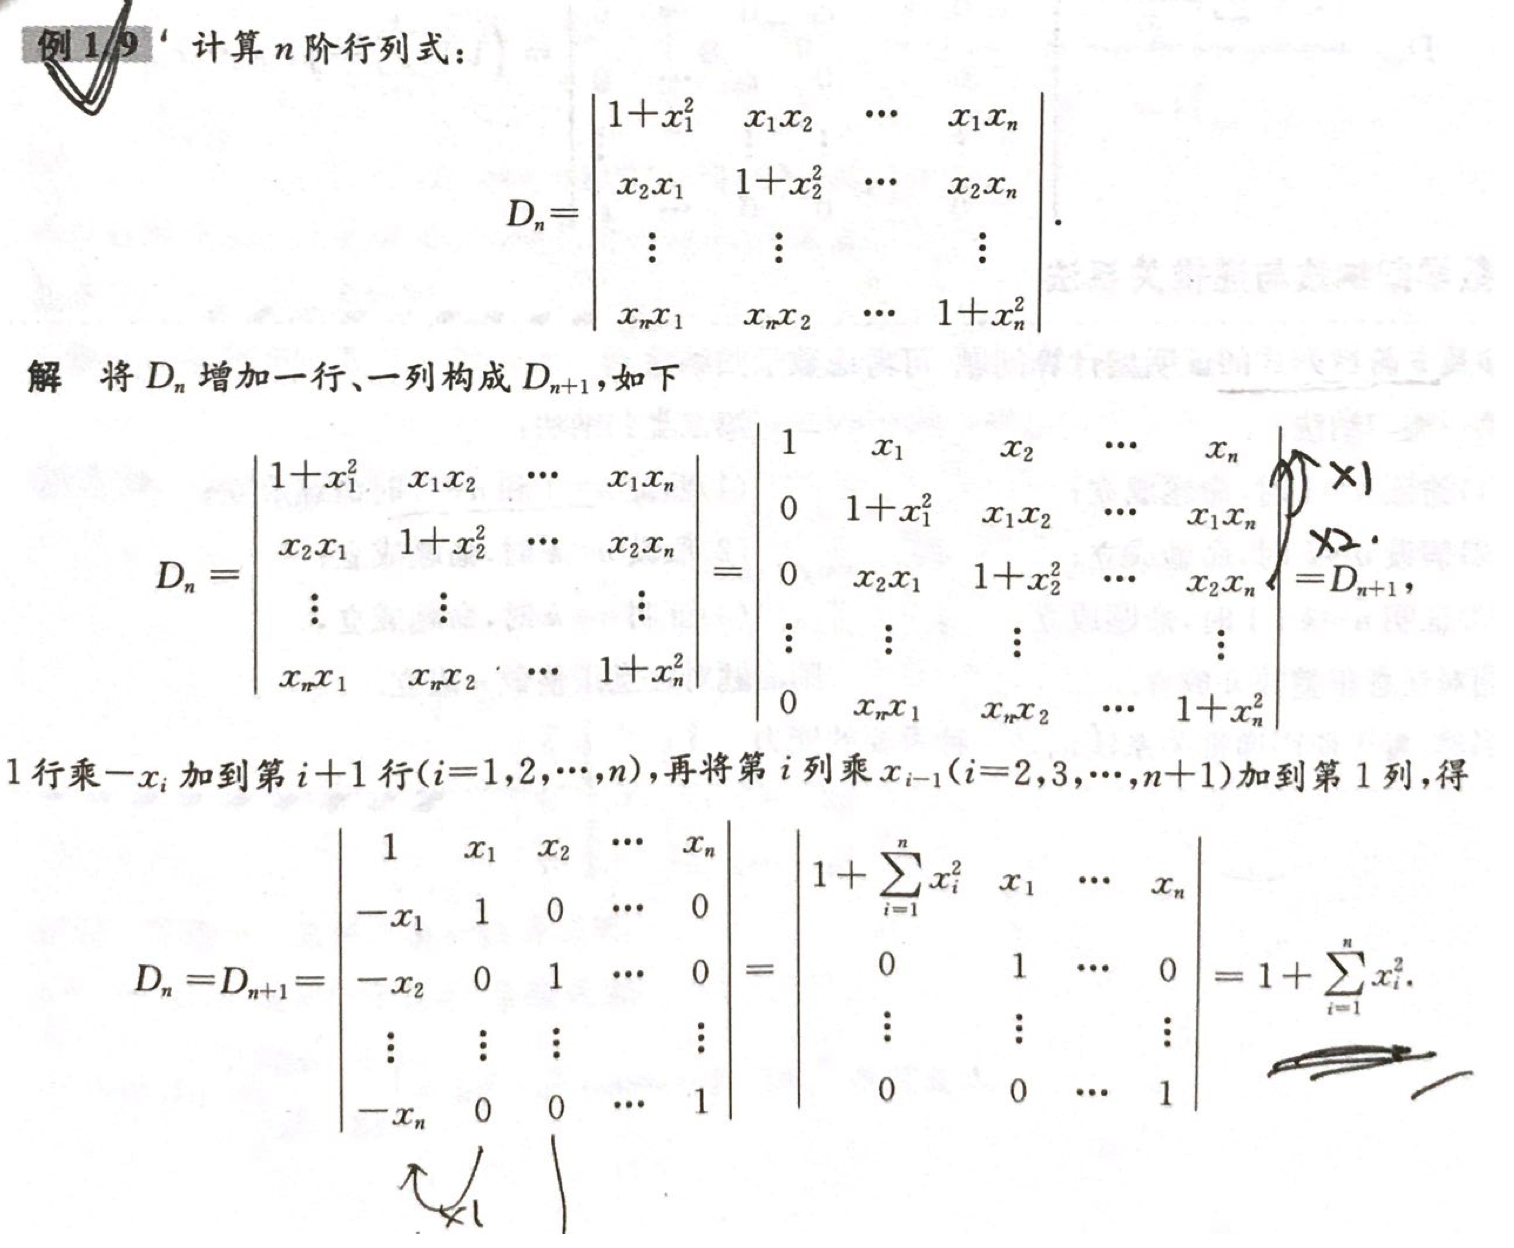 例 1.9 计算 n 阶行列式:
D_n = | 1+x_1^2 x_1x_2 ⋯ x_1x_n |
| x_2x_1 1+x_2^2 ⋯ x_2x_n |
| ⋮ ⋮ ⋮ | .
| x_nx_1 x_nx_2 ⋯ 1+x_n^2 |
解 将 D_n 增加一行、一列构成 D_{n+1},如下
D_n = | 1+x_1^2 x_1x_2 ⋯ x_1x_n ; x_2x_1 1+x_2^2 ⋯ x_2x_n ; ⋮ ⋮ ⋮ ; x_nx_1 x_nx_2 ⋯ 1+x_n^2 | = | 1 x_1 x_2 ⋯ x_n ; 0 1+x_1^2 x_1x_2 ⋯ x_1x_n ; 0 x_2x_1 1+x_2^2 ⋯ x_2x_n ; ⋮ ⋮ ⋮ ⋮ ; 0 x_nx_1 x_nx_2 ⋯ 1+x_n^2 | = D_{n+1},
x1
x2.
1 行乘 −x_i 加到第 i+1 行(i=1,2,⋯,n),再将第 i 列乘 x_{i−1}(i=2,3,⋯,n+1)加到第 1 列,得
D_n = D_{n+1} = | 1 x_1 x_2 ⋯ x_n ; −x_1 1 0 ⋯ 0 ; −x_2 0 1 ⋯ 0 ; ⋮ ⋮ ⋮ ⋮ ; −x_n 0 0 ⋯ 1 | = | 1+∑_{i=1}^{n} x_i^2 x_1 ⋯ x_n ; 0 1 ⋯ 0 ; ⋮ ⋮ ⋮ ; 0 0 ⋯ 1 | = 1+∑_{i=1}^{n} x_i^2.
x1